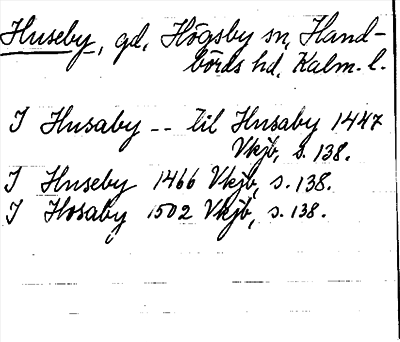 Huseby, gd, Högsby sn, Hand-
börds hd, Kalm. l.
I Husaby -- til Husaby 1447
Vkjb, s. 138.
I Huseby 1466 Vkjb, s. 138.
I Hosaby 1502 Vkjb, s. 138.